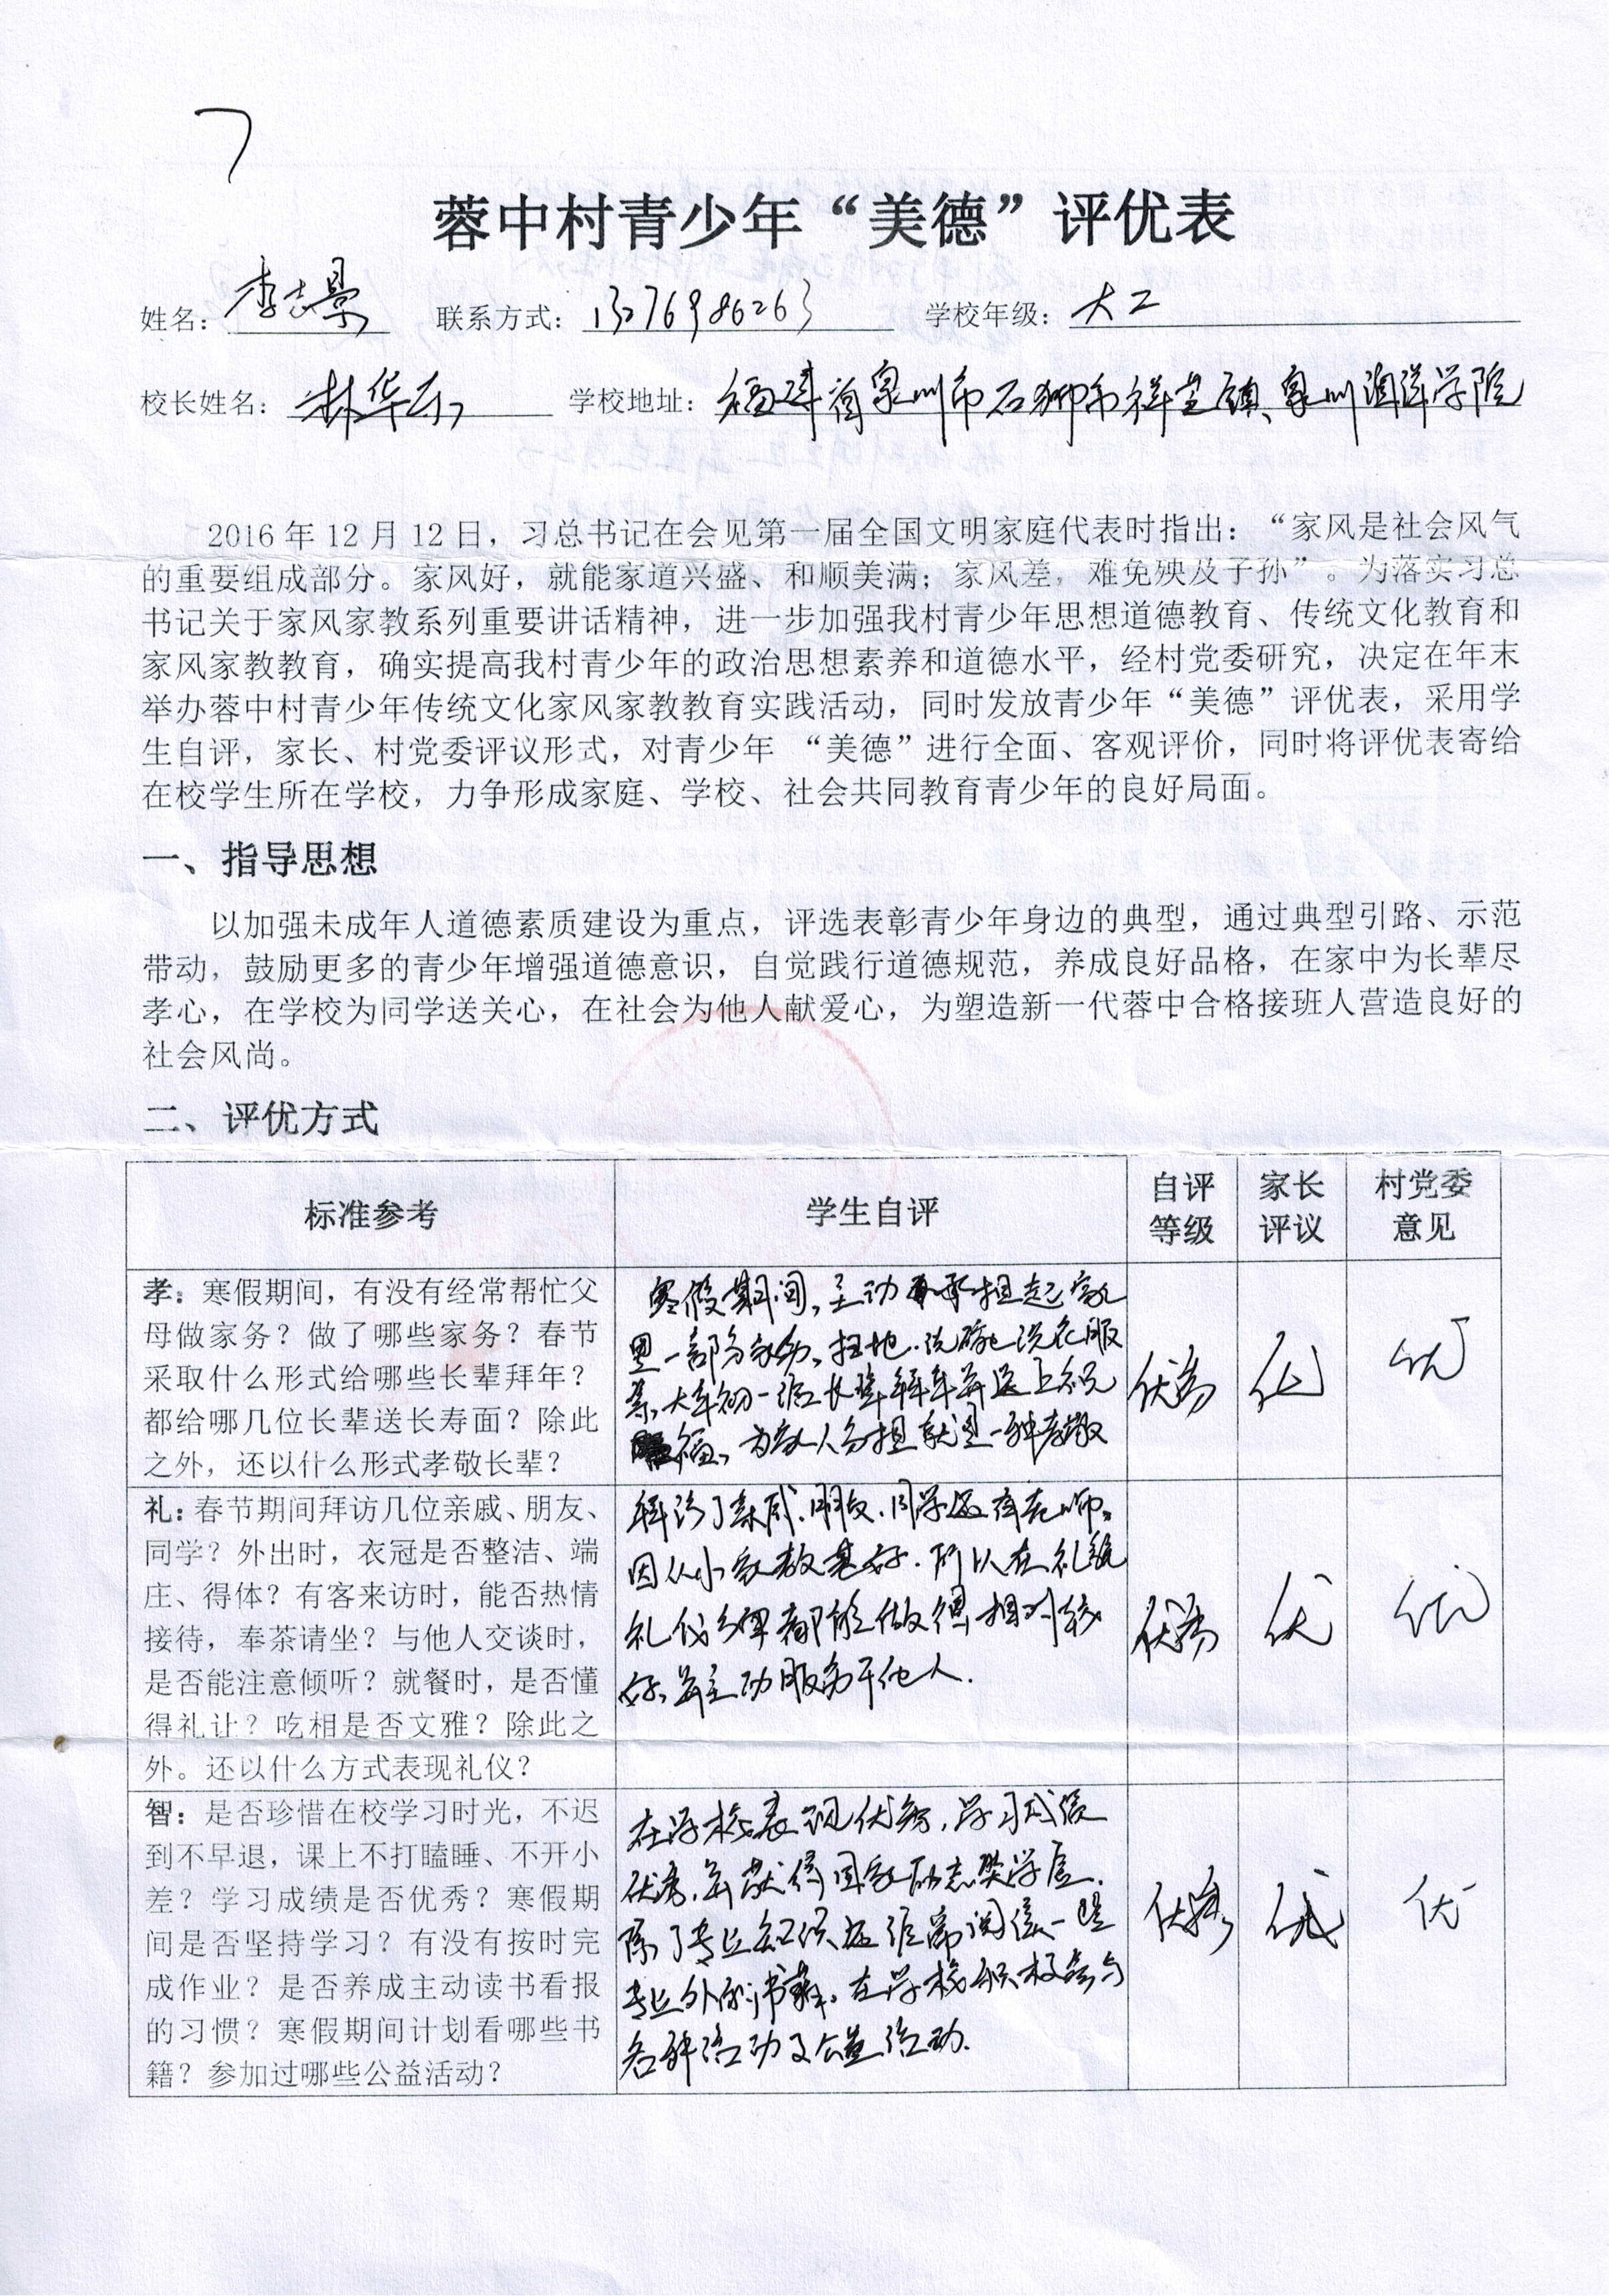 7
蓉中村青少年“美德”评优表
姓名：李志景 联系方式：13276986263 学校年级：大二
校长姓名：林华东 学校地址：福建省泉州市石狮市祥芝镇、泉州海洋学院
2016年12月12日，习总书记在会见第一届全国文明家庭代表时指出：“家风是社会风气
的重要组成部分。家风好，就能家道兴盛、和顺美满；家风差，难免殃及子孙”。为落实习总
书记关于家风家教系列重要讲话精神，进一步加强我村青少年思想道德教育、传统文化教育和
家风家教教育，确实提高我村青少年的政治思想素养和道德水平，经村党委研究，决定在年末
举办蓉中村青少年传统文化家风家教教育实践活动，同时发放青少年“美德”评优表，采用学
生自评，家长、村党委评议形式，对青少年 “美德”进行全面、客观评价，同时将评优表寄给
在校学生所在学校，力争形成家庭、学校、社会共同教育青少年的良好局面。
一、指导思想
以加强未成年人道德素质建设为重点，评选表彰青少年身边的典型，通过典型引路、示范
带动，鼓励更多的青少年增强道德意识，自觉践行道德规范，养成良好品格，在家中为长辈尽
孝心，在学校为同学送关心，在社会为他人献爱心，为塑造新一代蓉中合格接班人营造良好的
社会风尚。
二、评优方式
标准参考 学生自评 自评等级 家长评议 村党委意见
孝：寒假期间，有没有经常帮忙父
母做家务？做了哪些家务？春节
采取什么形式给哪些长辈拜年？
都给哪几位长辈送长寿面？除此
之外，还以什么形式孝敬长辈？
寒假期间，主动承担起家
里一部分家务，扫地、洗碗、洗衣服
等，大年初一给长辈拜年并送上祝
福，为家人分担就是一种孝敬
优秀 优 优
礼：春节期间拜访几位亲戚、朋友、
同学？外出时，衣冠是否整洁、端
庄、得体？有客来访时，能否热情
接待，奉茶请坐？与他人交谈时，
是否能注意倾听？就餐时，是否懂
得礼让？吃相是否文雅？除此之
外。还以什么方式表现礼仪？
拜访了亲戚、朋友、同学还有老师。
因从小家教甚好，所以在礼貌
礼仪这里都能做得相对较
好，并主动服务于他人.
优秀 优 优
智：是否珍惜在校学习时光，不迟
到不早退，课上不打瞌睡、不开小
差？学习成绩是否优秀？寒假期
间是否坚持学习？有没有按时完
成作业？是否养成主动读书看报
的习惯？寒假期间计划看哪些书
籍？参加过哪些公益活动？
在学校表现优秀，学习成绩
优秀，并获得国家励志奖学金.
除了专业知识还经常阅读一些
专业外的书籍，在学校积极参与
各种活动及公益活动.
优秀 优 优